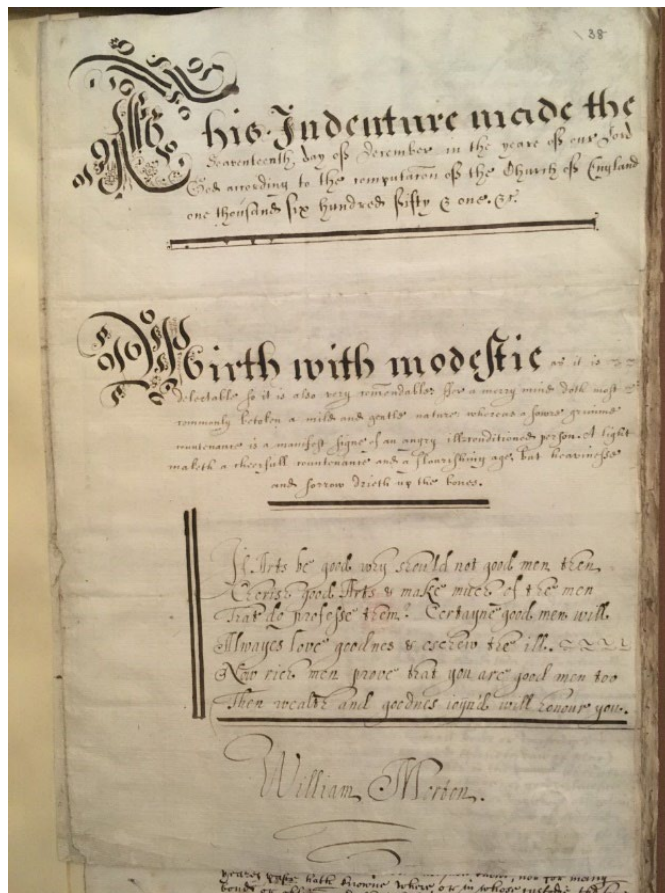 38
This Indenture made the
Seaventeenth day of December in the yeare of our Lord
God according to the computacon of the Church of England
one thousand six hundred fifty & one. &c.
Mirth with modestie as it is
delectable so it is also very comendable: for a merry mind doth most
commonly betoken a mild and gentle nature whereas a sowre grimme
countenance is a manifest signe of an angry illconditioned person. A light
maketh a cheerfull countenance and a flourishing age, but heavinesse
and sorrow drieth up the bones.
If Arts be good why should not good men then
Cherish good Arts & make much of the men
That do professe them? Certayne good men will
Alwayes love goodnes & eschew the ill.
Now rich men prove that you are good men too
Then wealth and goodnes ioyn'd will honour you.
William Merten.
yeares past hath knowne where, or in whose custodie the